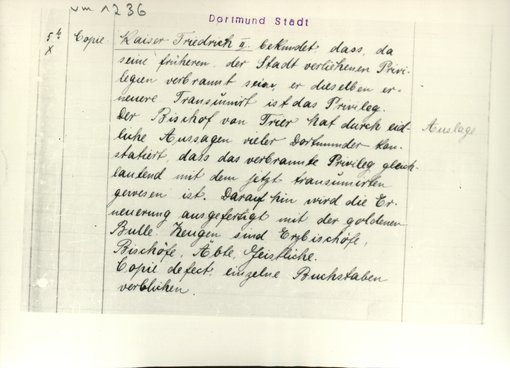 vm 1236
Dortmund Stadt
5b Copie. Kaiser Friedrich II. bekundet dass, da
X seine früheren der Stadt verliehenen Privi-
legien verbrannt seien, er dieselben er-
neuere. Transumirt ist das Privileg.
Der Bischof von Trier hat durch eid-
liche Aussagen vieler Dortmunder kon- Auslage
statiert, dass das verbrannte Privileg gleich-
lautend mit dem jetzt transumirten
gewesen ist. Darauf hin wird die Er-
neuerung ausgefertigt mit der goldenen
Bulle. Zeugen sind Erzbischöfe,
Bischöfe, Äbte, Geistliche.
Copie defect. einzelne Buchstaben
verblichen.